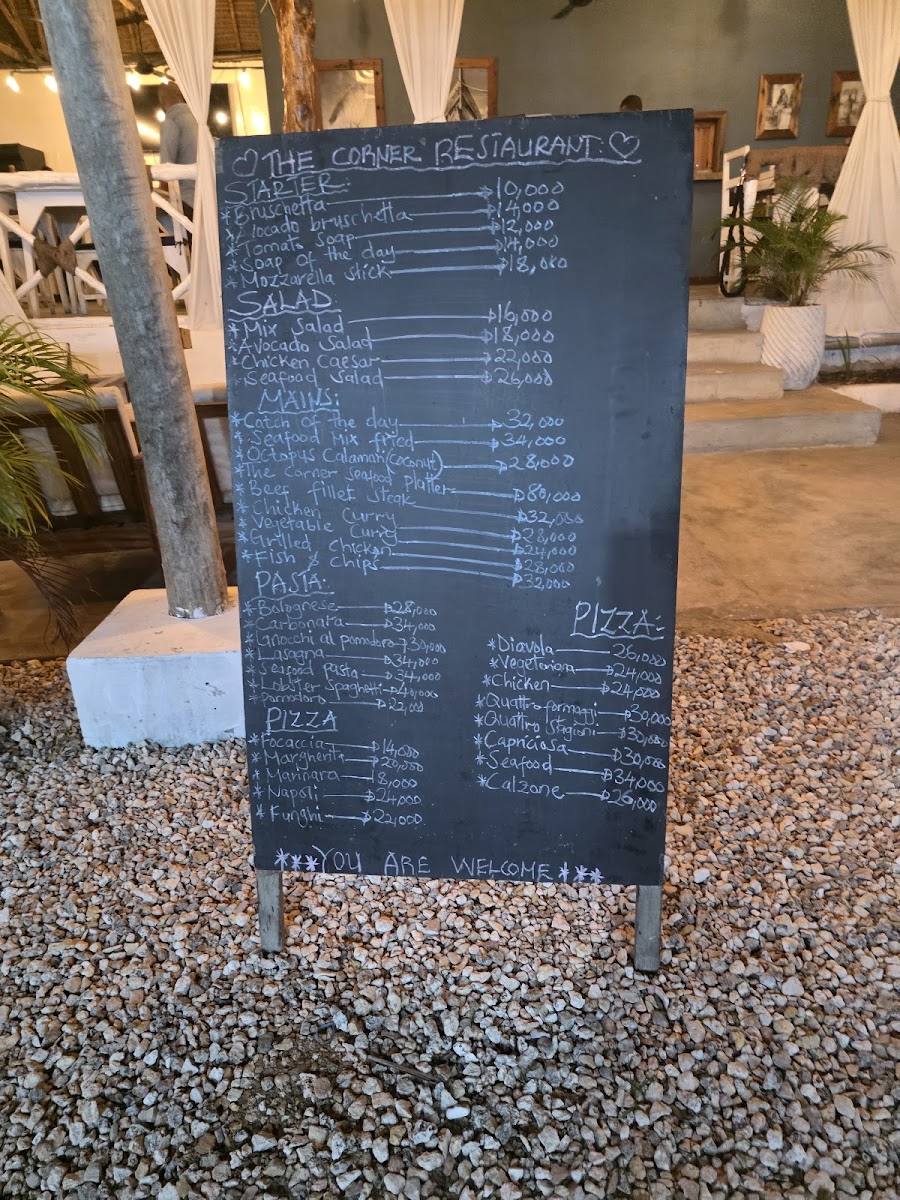 ♡THE CORNER RESTAURANT:♡
STARTER:
*Bruschetta → 10,000
*Avocado bruschetta → 14,000
*Tomato Soap → 12,000
*Soap of the day → 14,000
*Mozzarella stick → 18,000
SALAD
*Mix Salad → 16,000
*Avocado Salad → 18,000
*Chicken Caesar → 22,000
*Seafood Salad → 26,000
MAINS:
*Catch of the day → 32,000
*Seafood Mix fried → 34,000
*Octopus Calamari (coconut) → 28,000
*The corner seafood platter → 80,000
*Beef fillet steak → 32,000
*Chicken Curry → 28,000
*Vegetable Curry → 24,000
*Grilled Chicken → 28,000
*Fish & Chips → 32,000
PASTA:
*Bolognese → 28,000
*Carbonara → 34,000
*Gnocchi al pomodoro → 30,000
*Lasagna → 34,000
*Seafood Pasta → 34,000
*Lobster Spaghetti → 40,000
*Pomodoro → 22,000
PIZZA
*Focaccia → 14,000
*Margherita → 20,000
*Marinara 18,000
*Napoli → 24,000
*Funghi → 22,000
PIZZA:
*Diavola 26,000
*Vegetariana → 24,000
*Chicken → 24,000
*Quattro formaggi → 30,000
*Quattro Stagioni → 30,000
*Capriciosa → 30,000
*Seafood → 34,000
*Calzone → 26,000
***YOU ARE WELCOME***